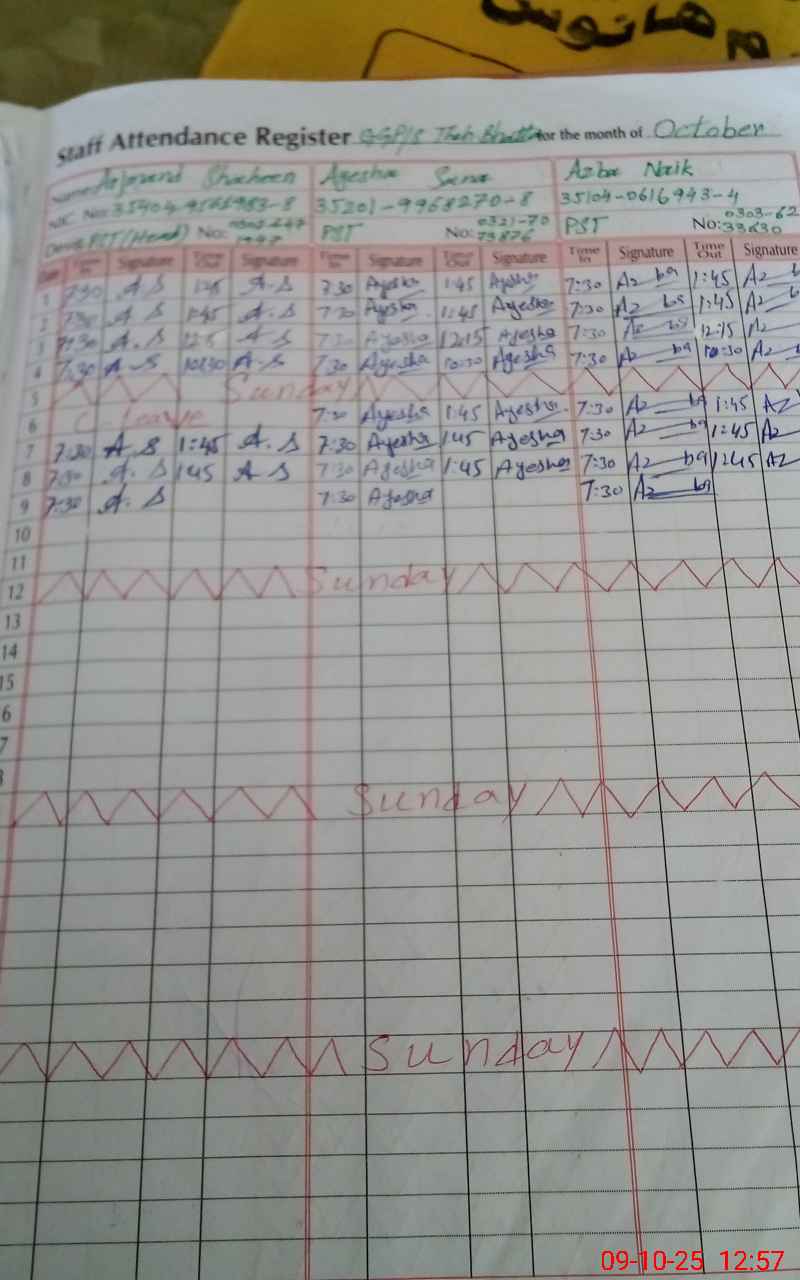 مانوس
Staff Attendance Register GGP/S Theh Bhatta for the month of October
Name: Arjmand Shaheen Ayesha Sana Azba Naik
NIC No: 35404-9566983-8 35201-9968270-8 35104-0616943-4
Desig: PST (Head) No: PST No: 0321-70 73876 PST No: 0303-62 33630
Date Time In Signature Time Out Signature Time In Signature Time Out Signature Time In Signature Time Out Signature
1 7:30 A.S 1:45 A.S 7:30 Ayesha 1:45 Ayesha 7:30 Az ba 1:45 Az b
2 7:30 A.S 1:45 A.S 7:30 Ayesha 1:45 Ayesha 7:30 Az ba 1:45 Az b
3 7:30 A.S A.S 7:30 Ayesha 12:15 Ayesha 7:30 Az ba 12:15 Az
4 7:30 A.S 10:30 A.S 7:30 Ayesha 10:30 Ayesha 7:30 Az ba 10:30 Az
5 Sunday
6 C. Leave 7:30 Ayesha 1:45 Ayesha 7:30 Az ba 1:45 Az
7 7:30 A.S 1:45 A.S 7:30 Ayesha 1:45 Ayesha 7:30 Az ba 1:45 Az
8 7:30 A.S 1:45 A.S 7:30 Ayesha 1:45 Ayesha 7:30 Az ba 1:45 Az
9 7:30 A.S 7:30 Ayesha 7:30 Az ba
10
11
12 Sunday
13
14
15
6
7
8
Sunday
Sunday
09-10-25 12:57